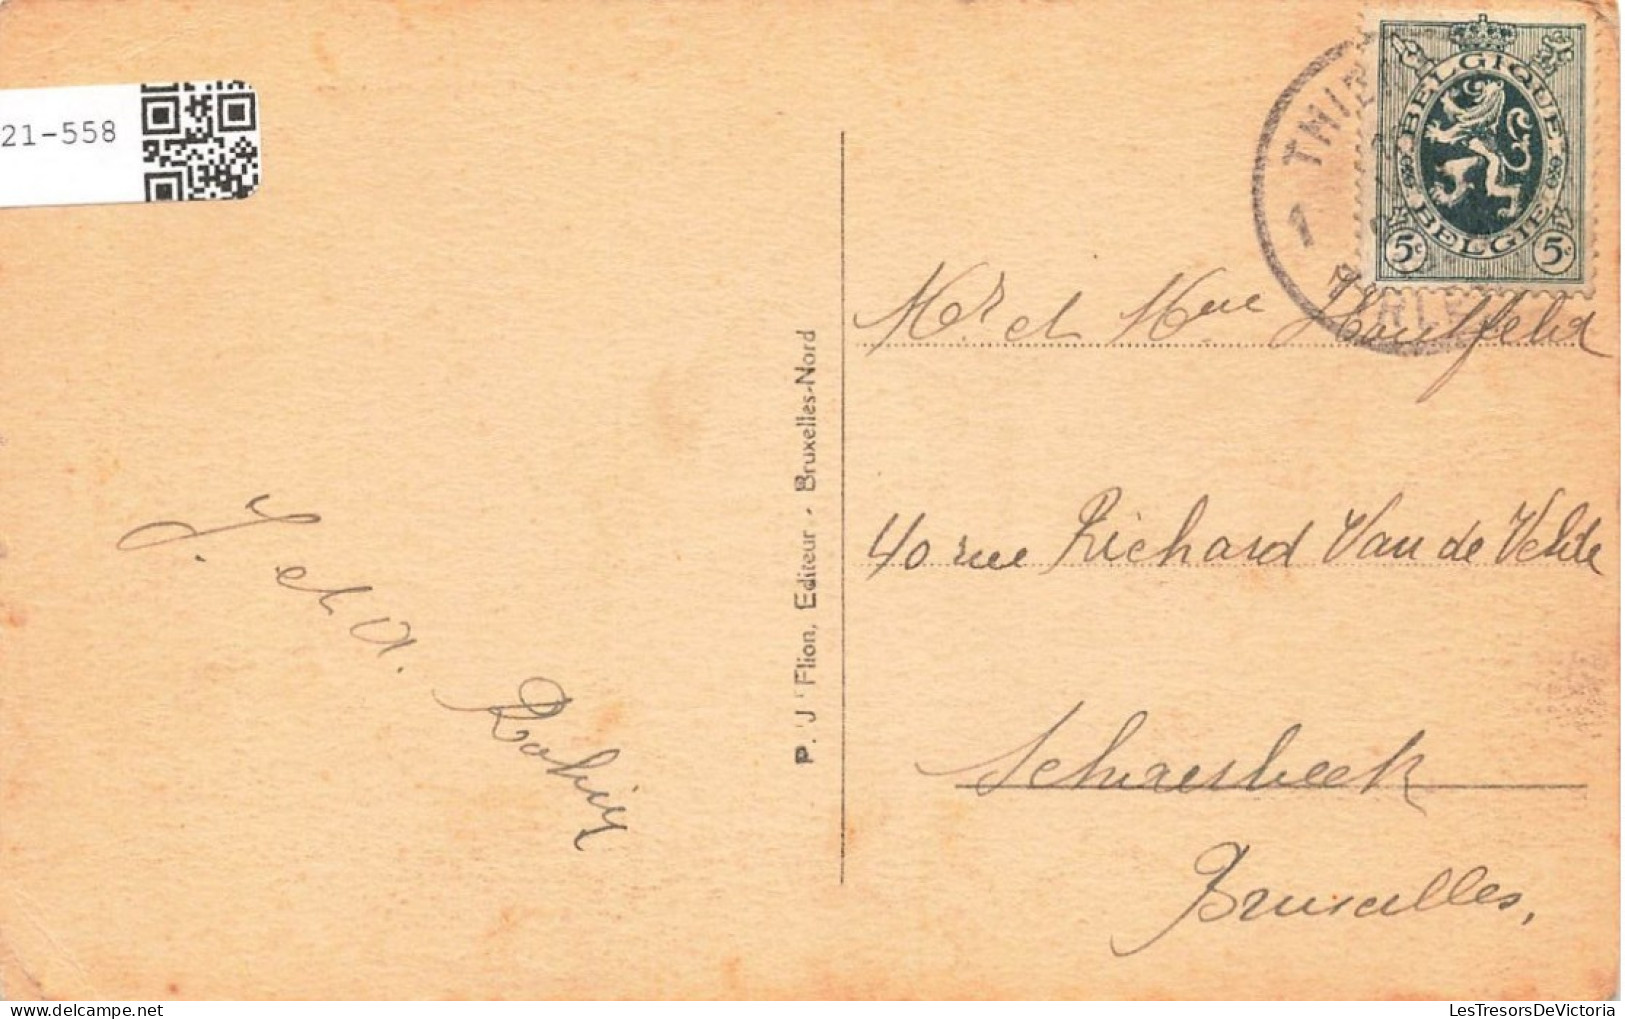 21-558
BELGIQUE
BELGIE
5c 5c
1
Mr et Mme Houtfeld
40 rue Richard Van de Velde
Schaerbeek
Bruxelles,
P. J. Flion, Editeur - Bruxelles-Nord
J. et A. Robin
LesTresorsDeVictoria